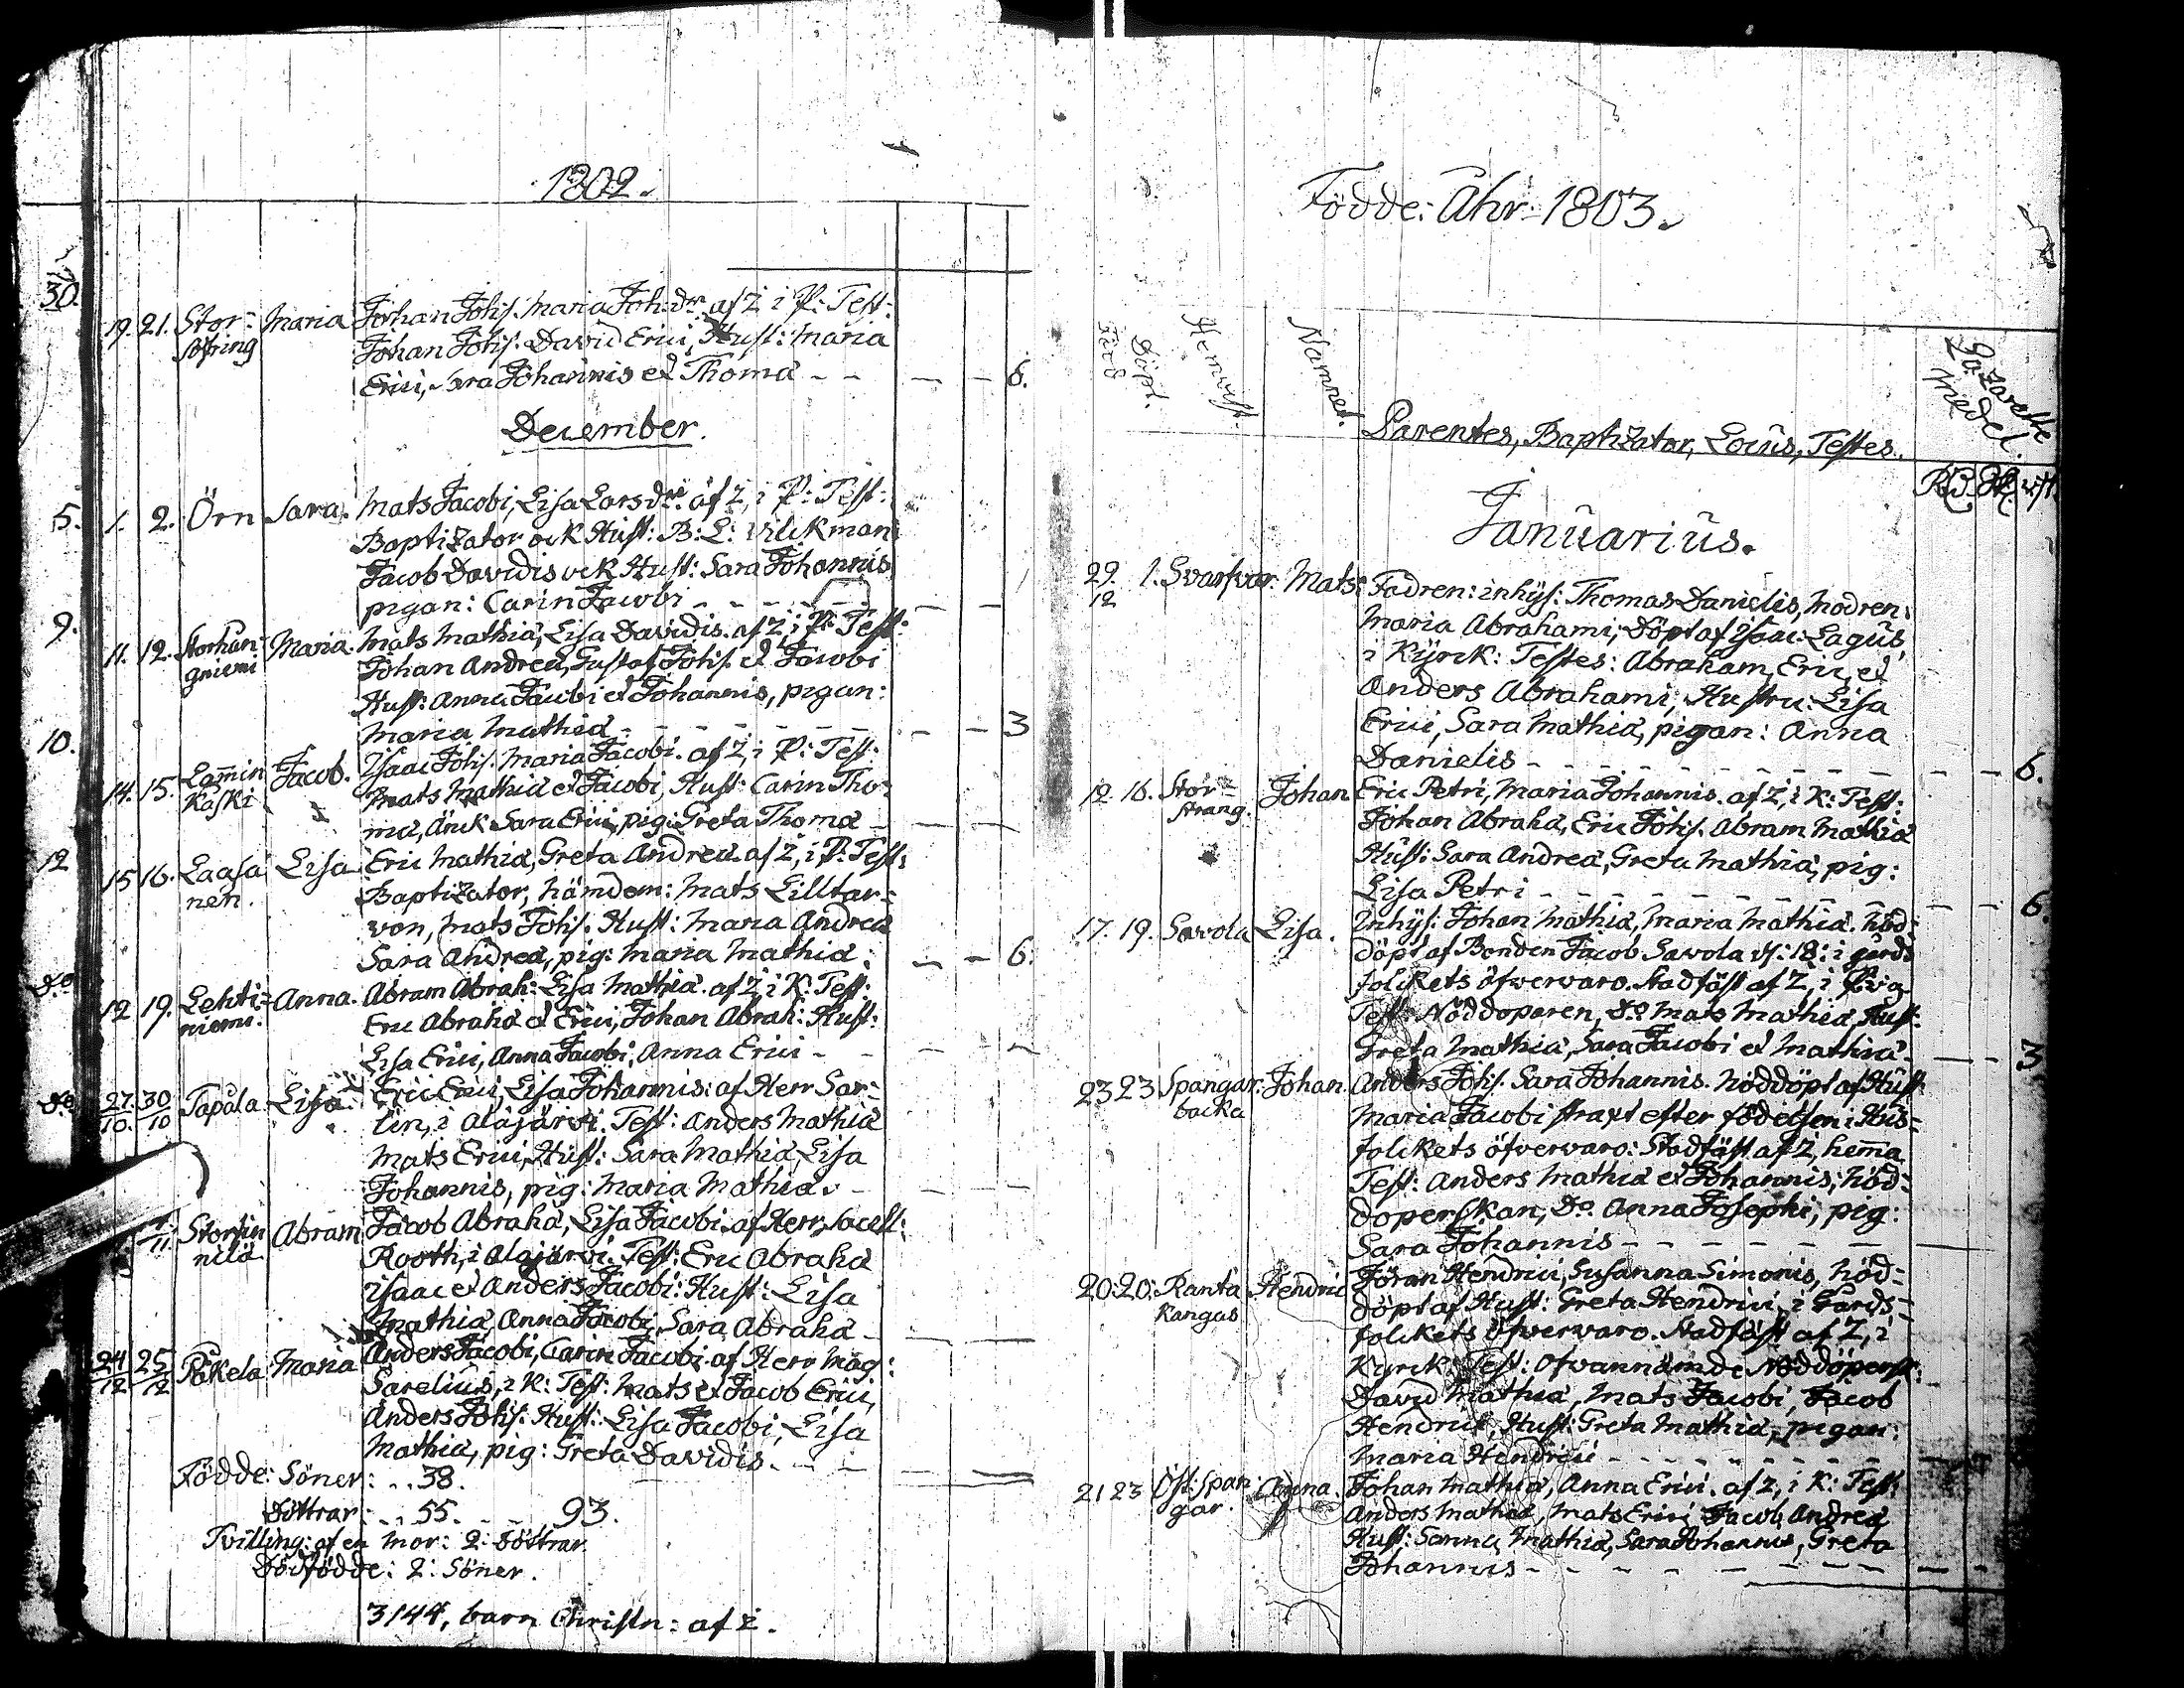 1802.
30.
19. 21. Stor= Maria Johan Johs. Maria Joh:dr. af Z i P: Test:
söfring Johan Johs. David Erici, Hust: Maria
Erici, Sara Johannis et Thomæ - - - - 6.
December.
5. 1. 2. Örn Sara. Mats Jacobi, Lisa Larsdr. af Z, i P: Test:
Baptizator ock Hust: B: L: Vilckman
Jacob Davidis ock Hust: Sara Johannis
pigan: Carin Jacobi - - - - -
9. 11. 12. Storhan= Maria. Mats Mathiæ, Lisa Davidis. af Z, i P: Test:
gniemi Johan Andreæ, Gustaf Johs. et Jacobi
Hust: Anna Jacobi et Johannis, pigan:
Maria Mathiæ - - - - - 3
10. 14. 15. Lamin Jacob. Isaac Johs. Maria Jacobi. af Z, i P: Test:
kaski Mats Mathiæ et Jacobi, Hust: Carin Tho=
mæ, Änck Sara Erici, pig: Greta Thomæ -
12 15 16. Laasa Lisa Eric Mathiæ, Greta Andreæ af Z, i P: Test:
nen. Baptizator, Nämdem: Mats Lilltar=
von, Mats Johs. Hust: Maria Andreæ
Sara Andreæ, pig: Maria Mathiæ. - - 6.
Do 12 19. Lehti= Anna. Abram Abrah: Lisa Mathiæ. af Z i K: Test:
niemi. Eric Abrahæ et Erici, Johan Abrah: Hust:
Lisa Erici, Anna Jacobi, Anna Erici - -
Do 27. 30 Tapala Lisa. Eric Erici, Lisa Johannis: af Herr Sar=
10. 10 lin, i Alajärvi. Test: Anders Mathiæ
Mats Erici, Hust: Sara Mathiæ, Lisa
Johannis, pig: Maria Mathiæ. -
11. Storfin Abram Jacob Abrahæ, Lisa Jacobi. af Herr Sacell:
nilä Rooth, i Alajärvi. Test: Eric Abrahæ
Isaac et Anders Jacobi: Hust: Lisa
Mathiæ, Anna Jacobi, Sara Abrahæ -
24 25 Påkela Maria Anders Jacobi, Carin Jacobi. af Herr Mag:
12 12 Sarelius, i K: Test: Mats et Jacob Erici,
Anders Johs. Hust: Lisa Jacobi, Lisa
Mathiæ, pig: Greta Davidis. - -
Födde: Söner: .. 38.
Döttrar: .. 55. - - 93.
Tvilling: af en Mor: 2: Döttrar.
Dödfödde: 2: Söner.
3144, barn Christn: af Z.
Födde: Åhr: 1803.
Född Döpt. Hemvist. Namnet. Lazarette
Medel.
Parentes, Baptizator, Locus, Testes.
Januarius.
29. 1. Svartvar. Mats: Fadren: inhys: Thomas Danielis, Modren:
12 Maria Abrahami; Döpt af Isaac: Lagus,
i Kyrck: Testes: Abraham, Eric, et
Anders Abrahami, Hustru: Lisa
Erici, Sara Mathiæ, pigan: Anna
Danielis - - - - - - 6.
12. 16. Stor= Johan Eric Petri, Maria Johannis. af Z, i K: Test:
strang. Johan Abrahæ, Eric Johs. Abram Mathiæ
Hust: Sara Andreæ, Greta Mathiæ, pig:
Lisa Petri - - - - - - 6.
17. 19. Savola Lisa. Inhys: Johan Mathiæ, Maria Mathiæ. Nöd=
döpt af Bonden Jacob Savola d: 18: i gårds
folckets öfwervaro. Stadfäst af Z, i
Test: Nöddöparen, Do Mats Mathiæ, Hust:
Greta Mathiæ, Sara Jacobi et Mathiæ - - 3
23 23 Spangar= Johan. Anders Johs. Sara Johannis. Nöddöpt af Hust:
backa Maria Jacobi straxt efter födelsen i Hus=
folckets öfvervaro: Stadfäst af Z, hemma
Test: Anders Mathiæ et Johannis, Nöd=
döperskan, Do. Anna Josephi, pig:
Sara Johannis - - - - - -
20. 20. Ranta Hendric Jöran Hendrici, Susanna Simonis, Nöd=
kangas döpt af Hust: Greta Hendrici, i Gårds=
folckets öfwervaro. Stadfäst af Z, i
Kyrck: Test: Ofwannämde Nöddöpersk:
David Mathiæ, Mats Jacobi, Jacob
Hendrici, Hust: Greta Mathiæ, pigan:
Maria Hendrici - - - - - -
21 23 Öst: Span Anna. Johan Mathiæ, Anna Erici. af Z, i K: Test:
gar. Anders Mathiæ, Mats Erici Jacob Andreæ
Hust: Sanna Mathiæ, Sara Johannis, Greta
Johannis - - - - - -